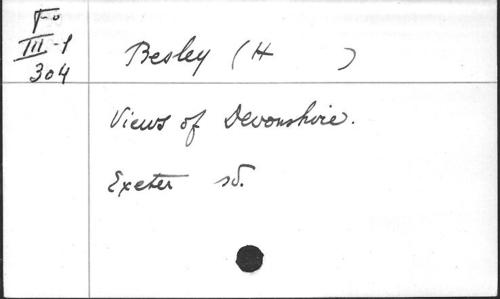 Fo
III-1
304
Besley (H )
Views of Devonshire.
Exeter sd.